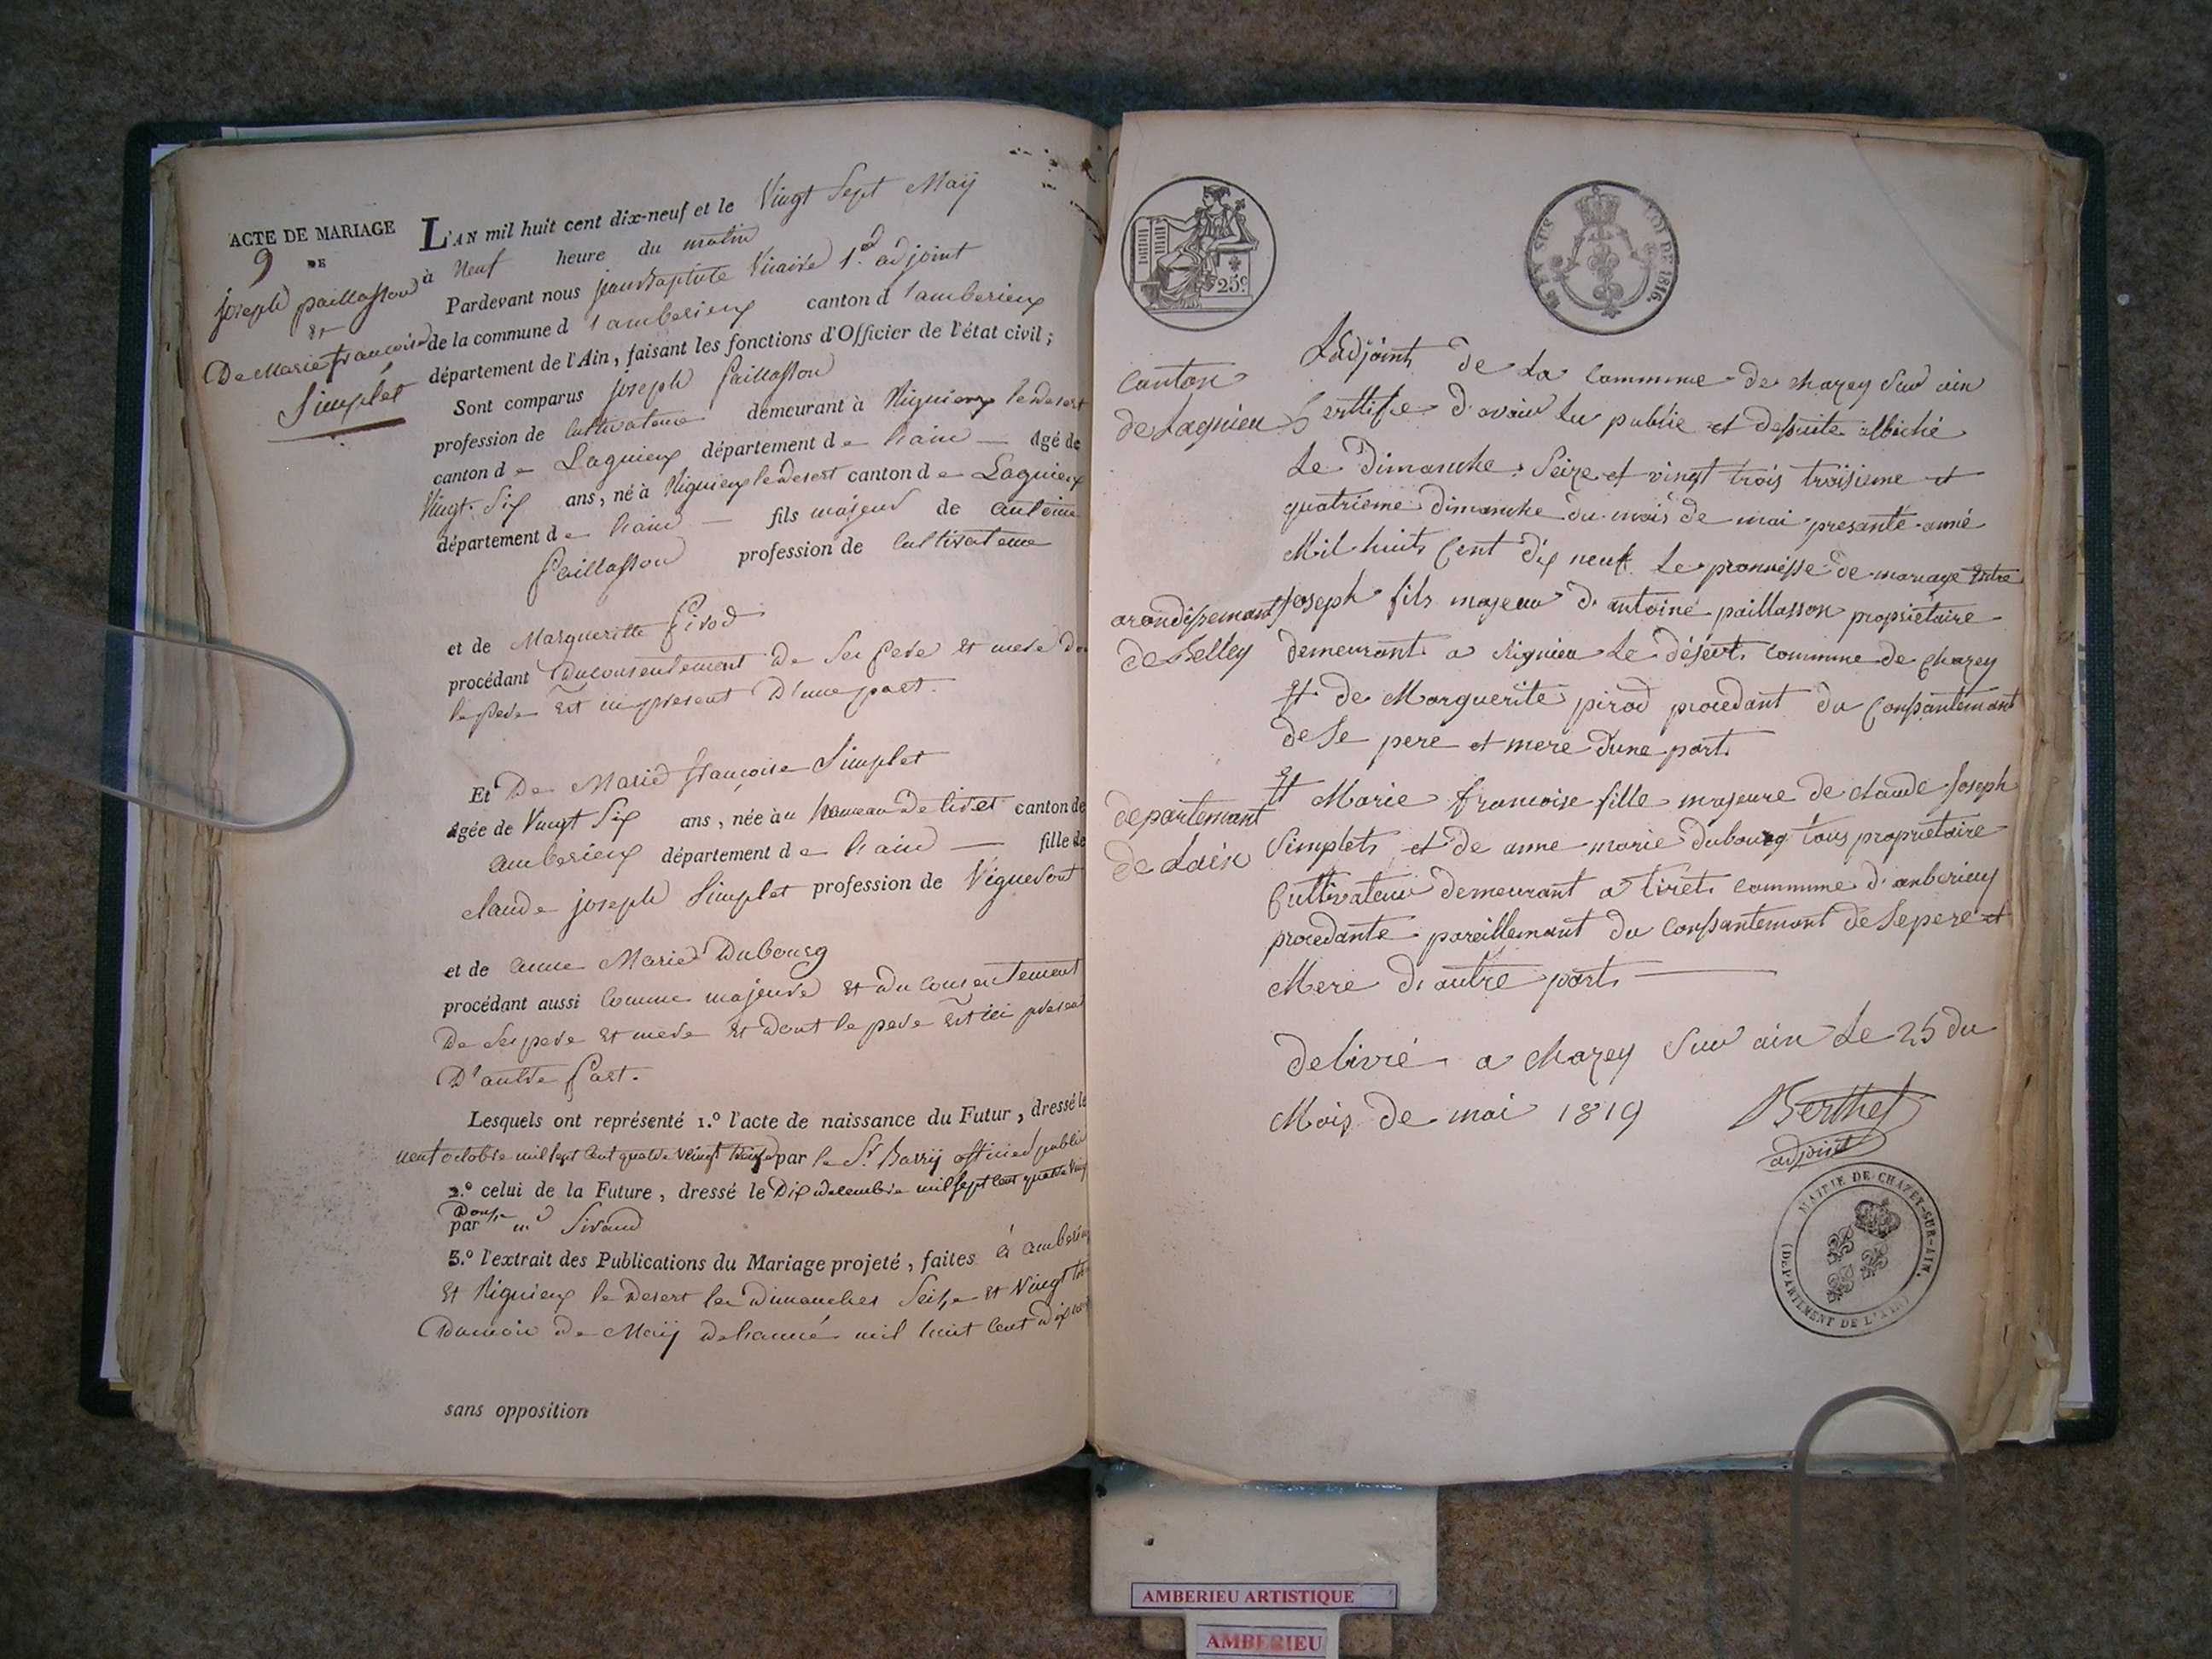 ACTE DE MARIAGE
9
DE
joseph paillasson
et
De Marie françoise
Simplet
L'AN mil huit cent dix-neuf et le Vingt Sept Maÿ
à Neuf heure du matin
Pardevant nous jean Baptiste Vicaire 1.er adjoint
de la commune d'amberieux canton d'amberieux
département de l'Ain, faisant les fonctions d'Officier de l'état civil;
Sont comparus joseph Paillasson
profession de Cultivateur demeurant à Rignieux le desert
canton de Lagnieux département de l'ain âgé de
Vingt Six ans, né à Rignieux le desert canton de Lagnieux
département de l'ain fils majeur de antoine
Paillasson profession de Cultivateur
et de Margueritte Pirod
procédant du consentement De Ses pere et mere
le pere Est ici present D'une part.
Et De Marie françoise Simplet
âgée de Vingt Six ans, née au hameau De tiret canton de
amberieux département de l'ain fille de
claude joseph Simplet profession de Vigneront
et de anne Marie Dubourg
procédant aussi Comme majeure Et du consentement
De Ses pere Et mere Et dont le pere Est ici
D'autre Part.
Lesquels ont représenté 1.º l'acte de naissance du Futur, dressé le
neuf octobre mil sept cent quatre Vingt par le Sr. Barrÿ officier public
2.º celui de la Future, dressé le Dix decembre mil sept cent quatre Vingt
Douze
par mr Sirand
3.º l'extrait des Publications du Mariage projeté, faites à
Et Rignieux le Desert les Dimanches Seize Et Vingt
Du mois de Maÿ De l'année mil huit Cent Dix
sans opposition
25c
LOI DE 1816.
canton
de Lagnieu
arondissemant
de Belley
departemant
de Lain
Ladjoint de La commune de chazey Sur ain
Certifie d'avoir Lu publié et dessuite affiché
Le Dimanche Seize et vingt trois troisieme et
quatrieme dimanche du mois de mai presante anné
Mil huit Cent dix neuf. Le promesse de mariage Entre
Joseph fils majeur d'antoine paillasson proprietaire
demeurant a Rignieu Le désert commune de Chazey
Et de Marguerite pirod procedant du Consantemant
de Se pere et mere dune part
Et Marie francoise fille majeure de claude Joseph
Simplet et de anne marie dubourg tous proprietaire
Cultivateur demeurant a tiret commune d'anberieux
procedante pareillemant du Consantemant de Se pere et
Mere d'autre part
delivré a chazey Sur ain Le 25 du
Mois de mai 1819
Berthet
adjoint
MAIRIE DE CHAZEY-SUR-AIN.
(DEPARTEMENT DE L'AIN)
AMBERIEU ARTISTIQUE
AMBERIEU